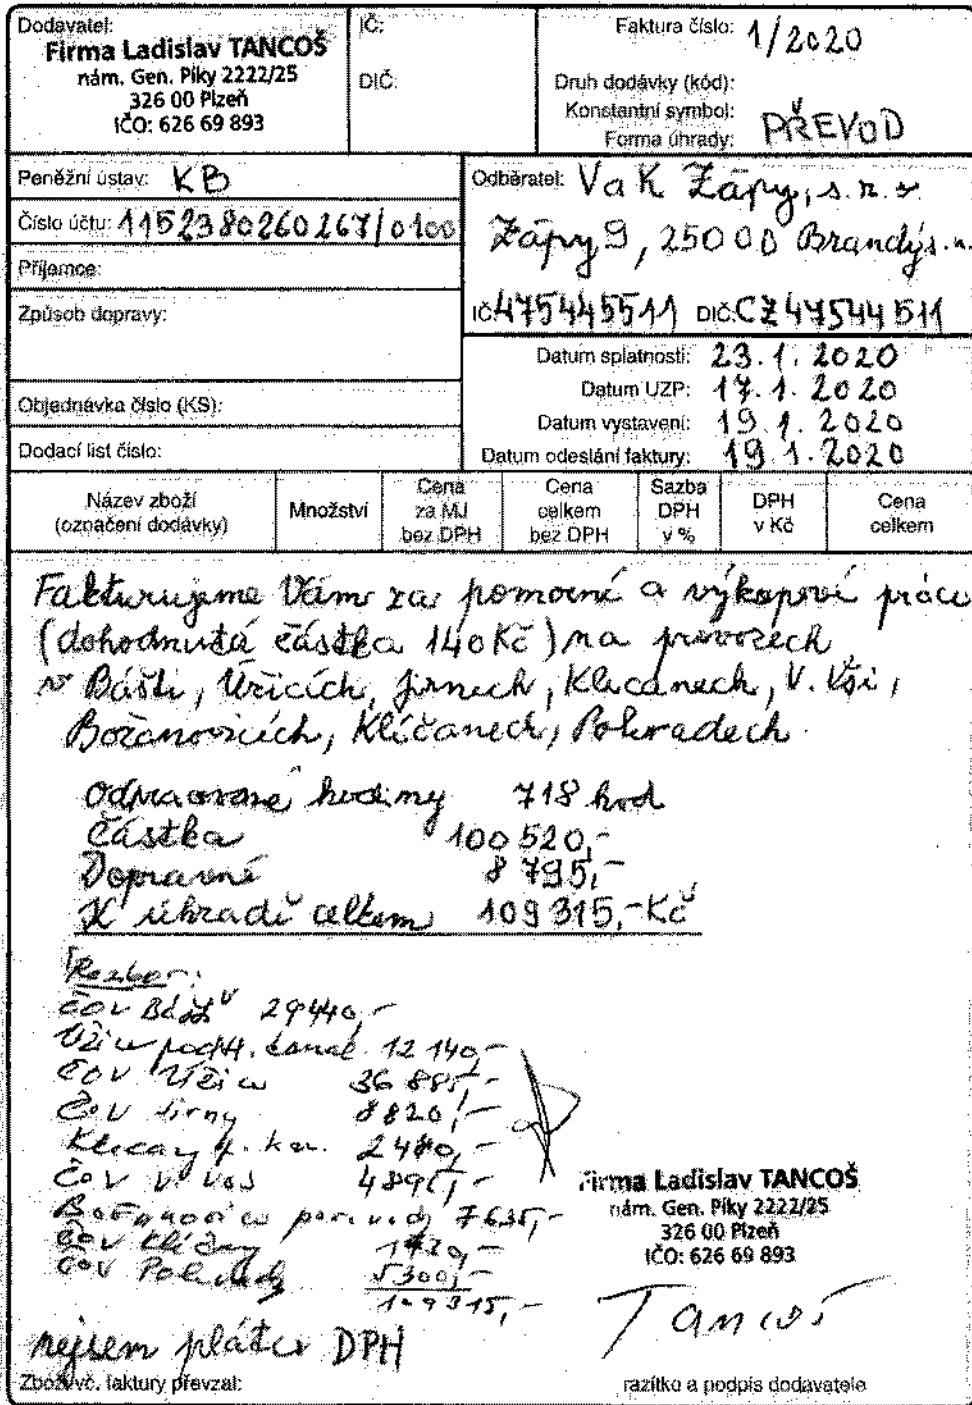 Dodavatel:
Firma Ladislav TANCOŠ
nám. Gen. Píky 2222/25
326 00 Plzeň
IČO: 626 69 893
IČ:
DIČ:
Faktura číslo: 1/2020
Druh dodávky (kód):
Konstantní symbol:
Forma úhrady: PŘEVOD
Peněžní ústav: KB
Číslo účtu: 1152380260267/0100
Příjemce:
Způsob dopravy:
Objednávka číslo (KS):
Dodací list číslo:
Odběratel: VaK Zápy, s.r.o.
Zápy 9, 250 00 Brandýs.n.
IČ: 475445511 DIČ: CZ47544511
Datum splatnosti: 23.1.2020
Datum UZP: 17.1.2020
Datum vystavení: 19.1.2020
Datum odeslání faktury: 19.1.2020
Název zboží (označení dodávky)
Množství
Cena za MJ bez DPH
Cena celkem bez DPH
Sazba DPH v %
DPH v Kč
Cena celkem
Fakturujeme Vám za pomocné a výkopové práce
(dohodnutá částka 140 Kč) na provozech
v Bášti, Úžicích, Jirnech, Klecanech, V. Vsi,
Bořanovicích, Klíčanech, Poleradech
Odpracované hodiny 718 hod
Částka 100 520,-
Dopravné 8 795,-
K úhradě celkem 109 315,-Kč
Rozbor:
ČOV Bášť 29440,-
Úžice podtl. kanal. 12 140,-
ČOV Úžice 36 885,-
ČOV Jirny 8820,-
Klecany t. kan. 2480,-
ČOV V. Ves 4895,-
Bořanovice 7635,-
ČOV Klíčany 1720,-
ČOV Polerady 5300,-
109315,-
Firma Ladislav TANCOŠ
nám. Gen. Píky 2222/25
326 00 Plzeň
IČO: 626 69 893
Tancoš
nejsem plátce DPH
Zboží vč. faktury převzal:
razítko a podpis dodavatele